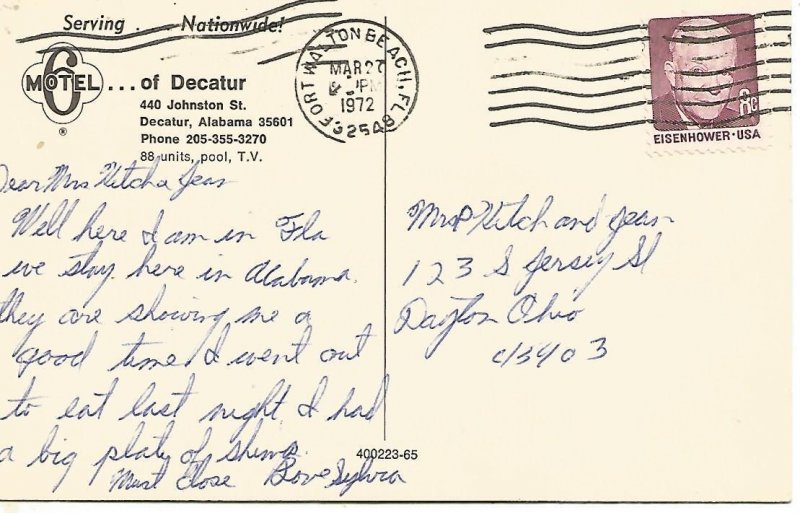 Serving . . . Nationwide!
MOTEL 6 ... of Decatur
440 Johnston St.
Decatur, Alabama 35601
Phone 205-355-3270
88 units, pool, T.V.
®
FORT WALTON BEACH, FL
MAR 27
PM
1972
32548
8c
EISENHOWER·USA
Dear Mrs Kitch & Jean
Well here I am in Fla
we stay here in Alabama.
they are showing me a
good time I went out
to eat last night I had
a big plate of
Must Close Love Sylvia
Mrs P Kitch and Jean
123 S Jersey St
Dayton Ohio
45403
400223-65